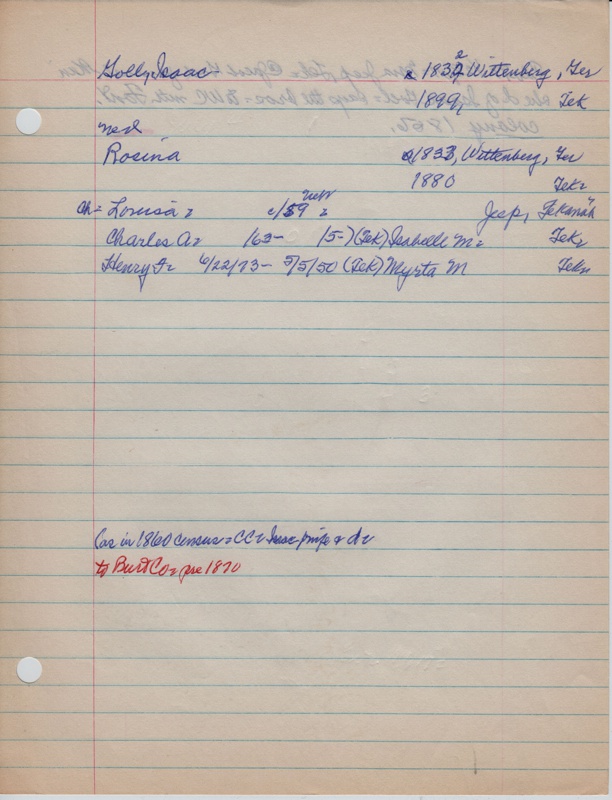 Golly, Isaac - c 1832 Wittenberg, Ger
1899, Tek
med
Rosina c/1833, Wittenberg, Ger
1880 Tek=
Ch= Louisa = c/59 = Neb Jeep, Tekamah
Charles A= /63- /5-) (Tek) Isabelle M= Tek=
Henry F= 6/22/73- 5/5/50 (Tek) Myrta M Tek=
in 1860 census = CC= Isaac & d=
to Burt Co= pre 1870